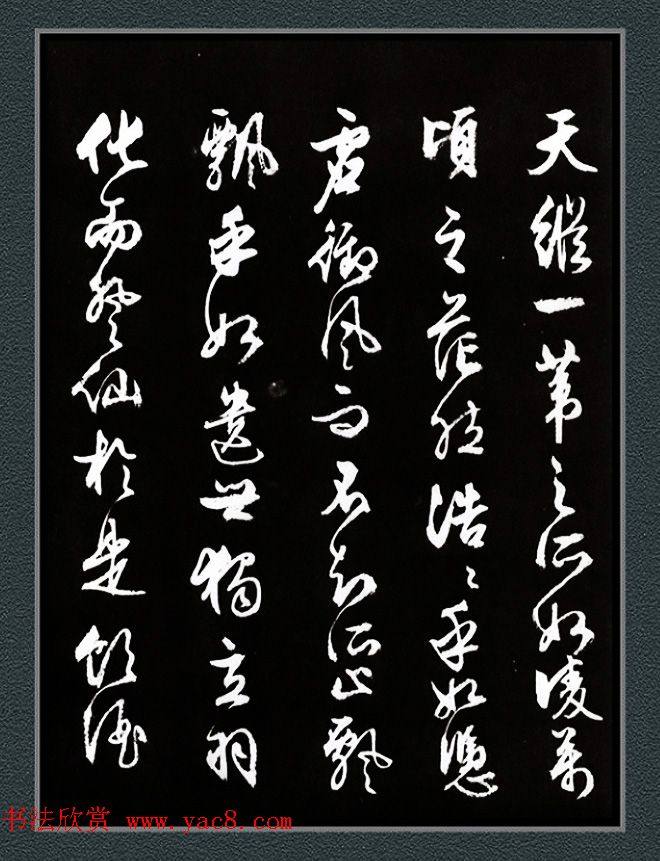 天縱一葦之所如凌萬
頃之茫然浩〻乎如憑
虛御風而不知所止飄
飄乎如遺世獨立羽
化而登仙於是飲酒
书法欣赏 www.yac8.com